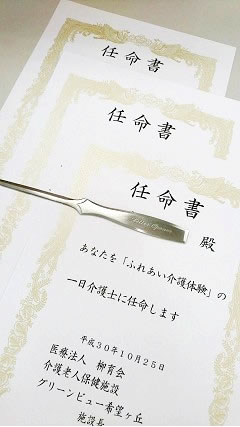 任命書
任命書
任命書
殿
あなたを「ふれあい介護体験」の
一日介護士に任命します
平成30年10月25日
医療法人 柳育会
介護老人保健施設
グリーンビュー希望ヶ丘
施設長